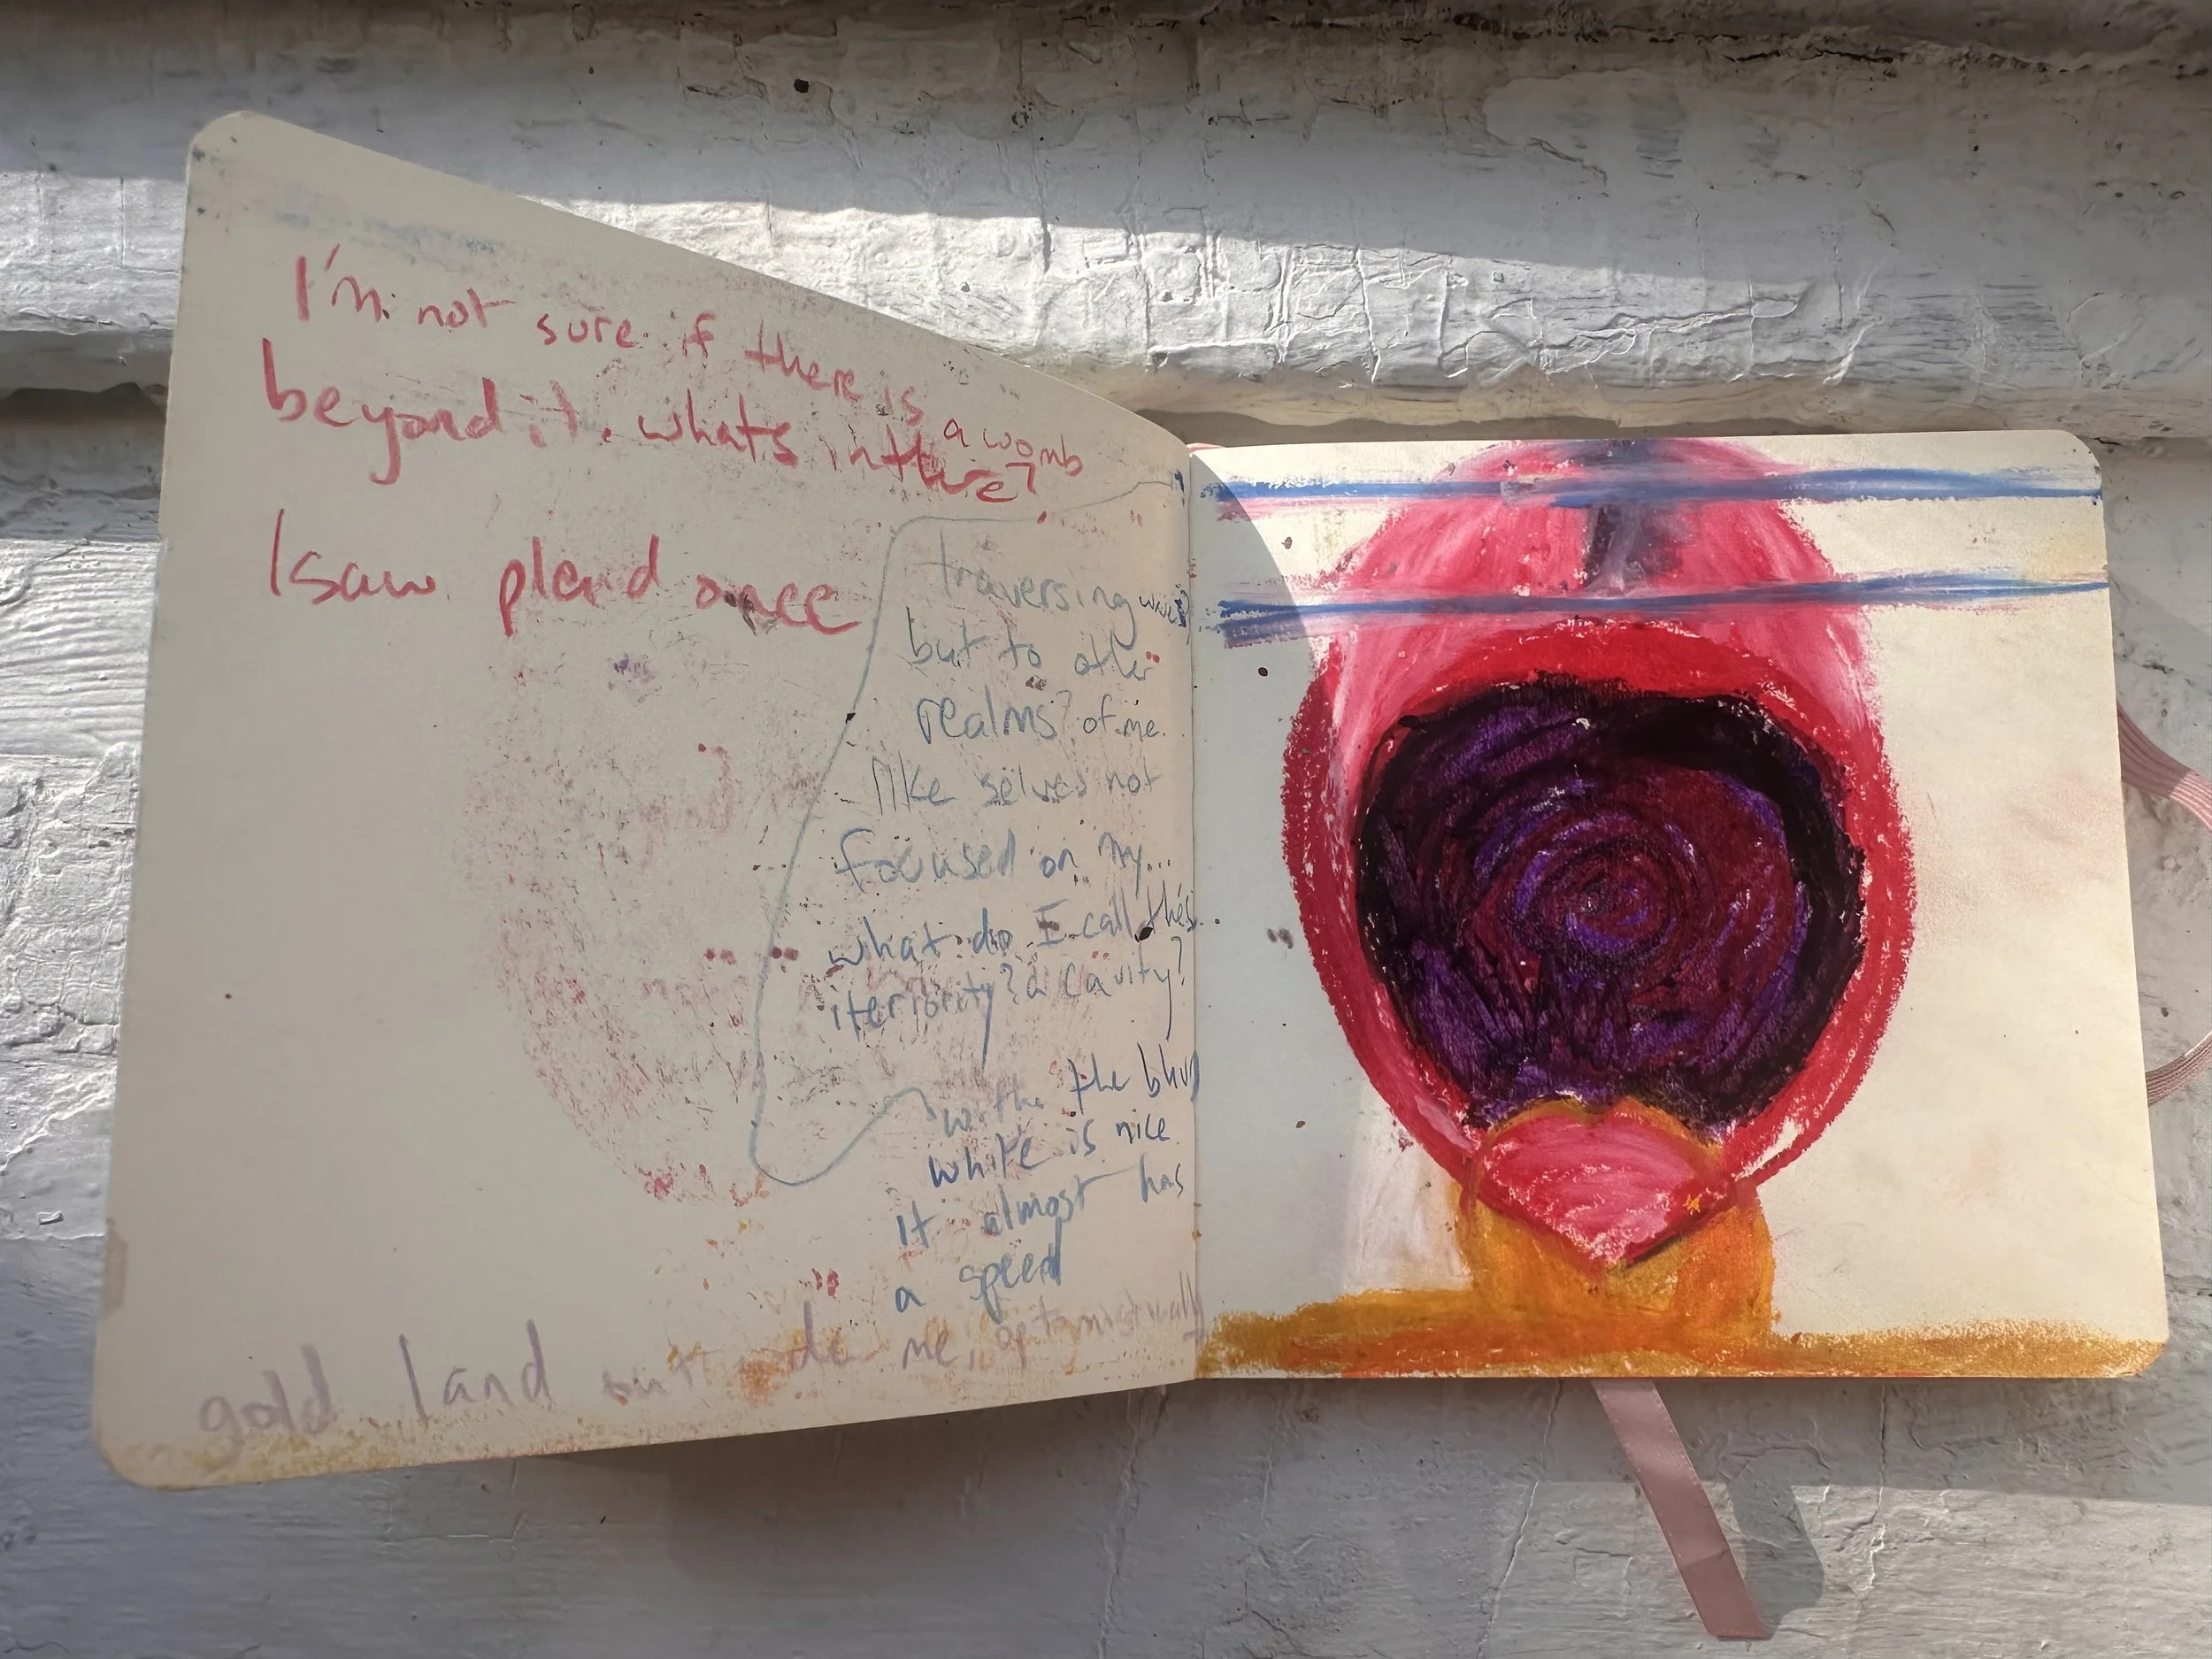 I'm not sure if there is a womb
beyond it. whats in there?
I saw plaid once
traversing waves?
but to other
realms? of me.
like selves not
focused on my...
what do I call this..
iteriority? a cavity?
with the blue
white is nice
it almost has
a speed
gold land outside me, optimistically